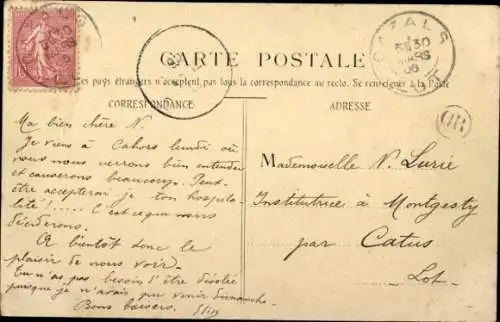 CARTE POSTALE
Les pays étrangers n'acceptent pas tous la correspondance au recto. Se renseigner à la Poste
CORRESPONDANCE
ADRESSE
CAZALS
30
MARS
06
LOT
OR
Ma bien chère N.
Je viens à Cahors lundi où
nous nous verrons bien entendu
et causerons beaucoup. Peut-
être accepterai je ton hospita-
lité!..... C'est ce que nous
déciderons.
A bientôt donc le
plaisir de nous voir.
Tu n'as pas besoin d'être désolée
puisque je n'avais pu venir dimanche.
Bons baisers.
Mademoiselle N. Lurie
Institutrice à Montgesty
par Catus
Lot.